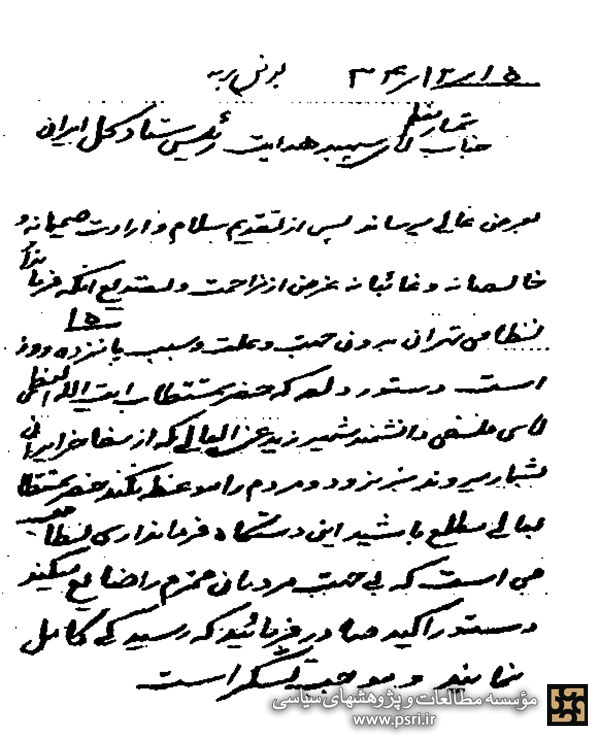 ۱۵/۱۲/۳۴
تیمار معظم
جناب آقای سپهبد هدایت رئیس ستاد کل ایران
بعرض عالی میرساند پس از تقدیم سلام و ارادت صمیمانه و
خالصانه و غائبانه غرض از مزاحمت و اینکه فرماندار
۱۵
نظامی تهران بدون جهت و علت و سبب پانزده روز
است دستور داده که حضرت مستطاب ایت الله العظمی
آقای فلسفی دانشمند شهیر زید عزه العالی که از مفاخر ایرانی
بشمار میروند منبر نرود و مردم را موعظه نکند حضرت مستطاب
عالی مطلع باشید این دستگاه فرمانداری نظا
می است که بی جهت مردمان محترم را ضایع میکند
دستور اکید صادر فرمائید که رسیدگی کامل
نمایند و موجب تشکر است
مؤسسه مطالعات و پژوهشهای سیاسی
www.psri.ir